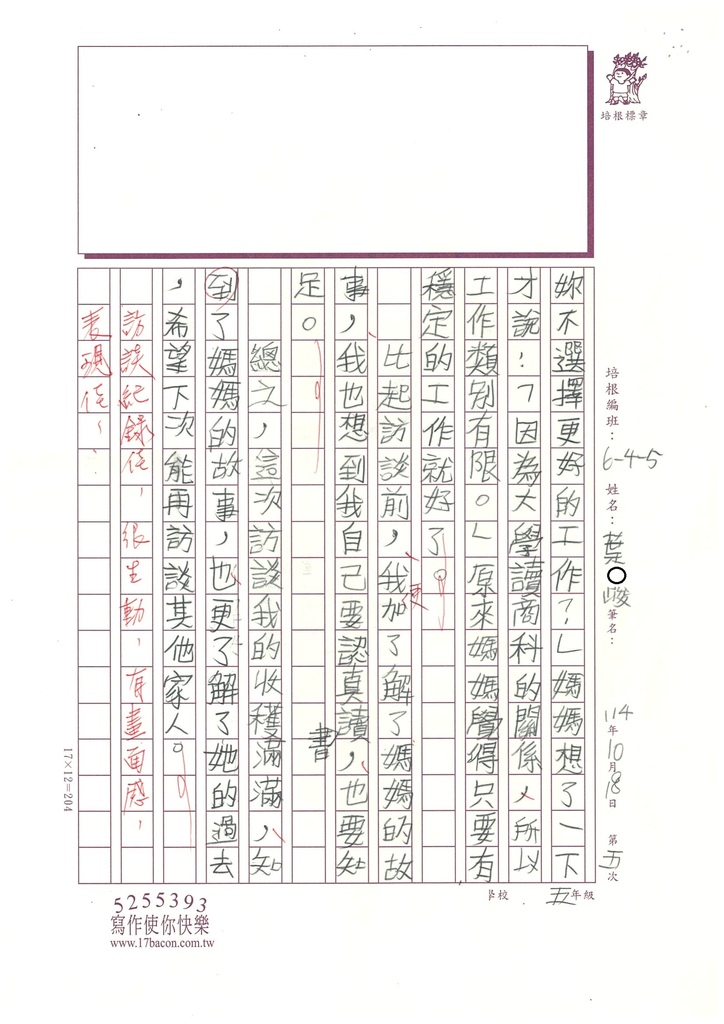 培根標章
培根編班：6-4-5 姓名：葉○峻 筆名：
114年10月18日 第五次
學校 五年級
妳不選擇更好的工作？」媽媽想了一下
才說：「因為大學讀商科的關係，所以
工作類別有限。」原來媽媽覺得只要有
穩定的工作就好了。
比起訪談前，我更加了解了媽媽的故
事，我也想到我自己要認真讀書，也要知
足。
總之，這次訪談我的收穫滿滿，知
到了媽媽的故事，也更了解了她的過去
，希望下次能再訪談其他家人。
訪談紀錄佳，很生動，有畫面感，
表現佳
17×12=204
5255393
寫作使你快樂
www.17bacon.com.tw